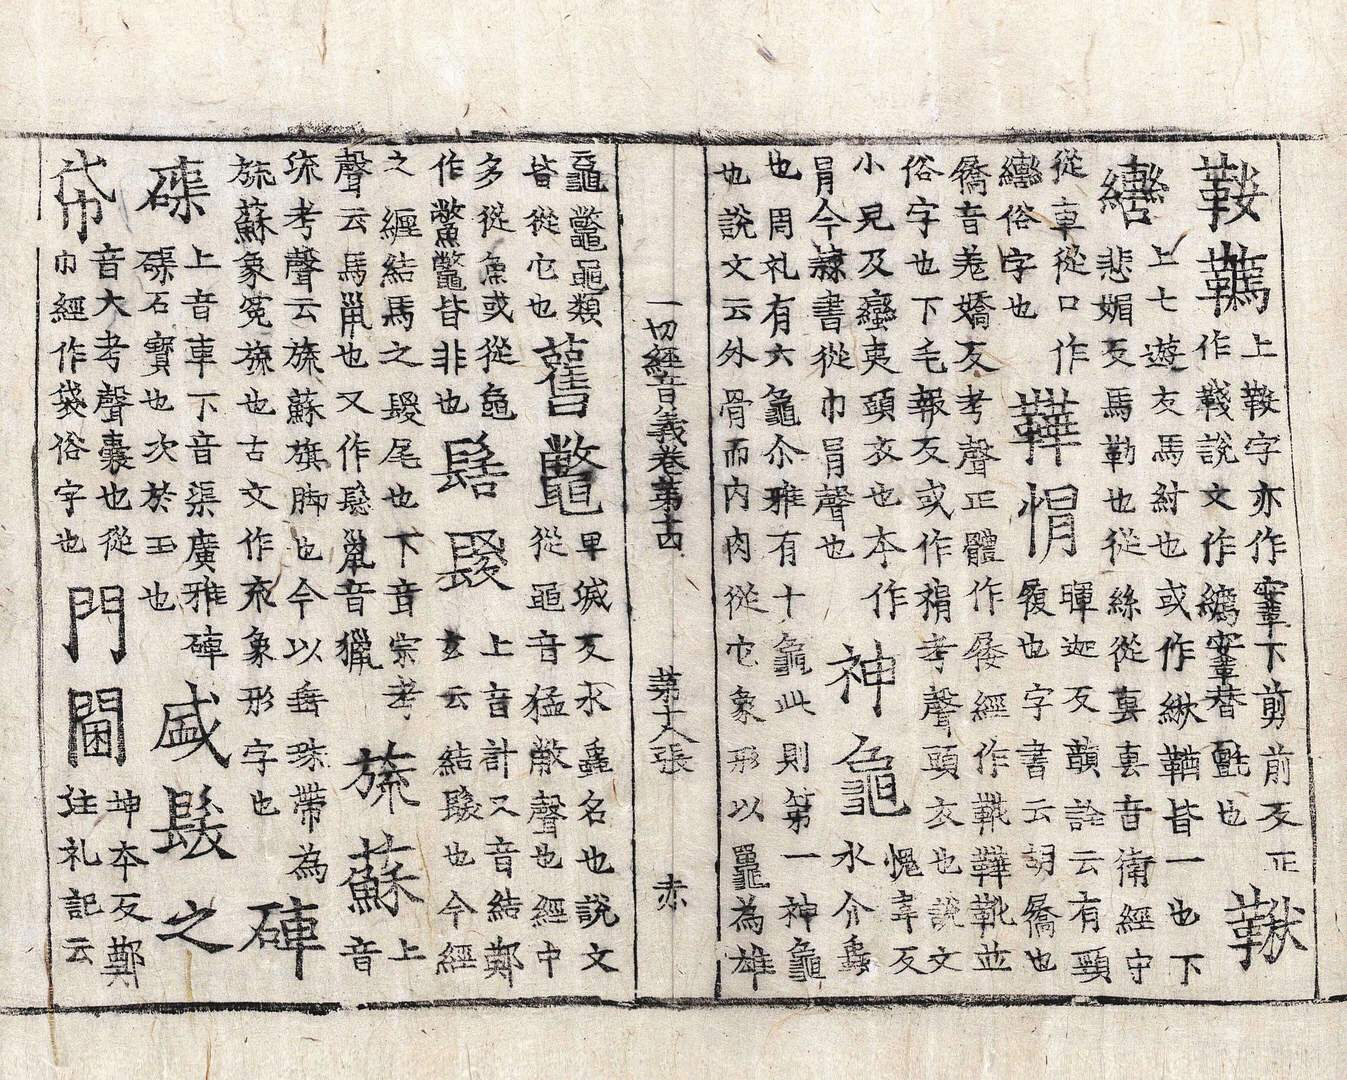 鞍韉
上鞍字亦作鞌下剪前反正
作韉說文作鞌替氈也
鞦
轡
上七遊反馬紂也或作緧䩭皆一也下
悲媚反馬勒也從絲從軎軎音衛經守
從車從口作
轡俗字也
鞾帽
暉迦反韻詮云有頸
履也字書云胡屩也
屩音羌嬌反考聲正體作屐經作靴鞾靴並
俗字也下毛報反或作䋃考聲頭衣也說文
小兒及蠻夷頭衣也本作
冃今隸書從巾冃聲也
神龜
愧韋反
水介蟲
也周礼有六龜尒雅有十龜此則第一神龜
也說文云外骨而內肉從它象形以黽為雄
一切經音義卷第十四 第十八張 赤
云龜鱉黽類
皆從它也
舊鼈
卑滅反水蟲名也說文
從黽音猛敝聲也經中
多從魚或從龜
作鱉鼈皆非也
髻騣
上音計又音結鄭
玄云結髮也今經
之纏結馬之騣尾也下音宗考
聲云馬鬣也又作鬃鬣音獵
旒蘇
上
音
旒考聲云旒蘇旗脚也今以垂珠帶為
旒蘇象冕旒也古文作㐬象形字也
硨
磲
上音車下音渠廣雅硨
磲石寶也次於玉也
盛髮之
帒
音大考聲囊也從
巾經作袋俗字也
門閫
坤本反鄭
注礼記云